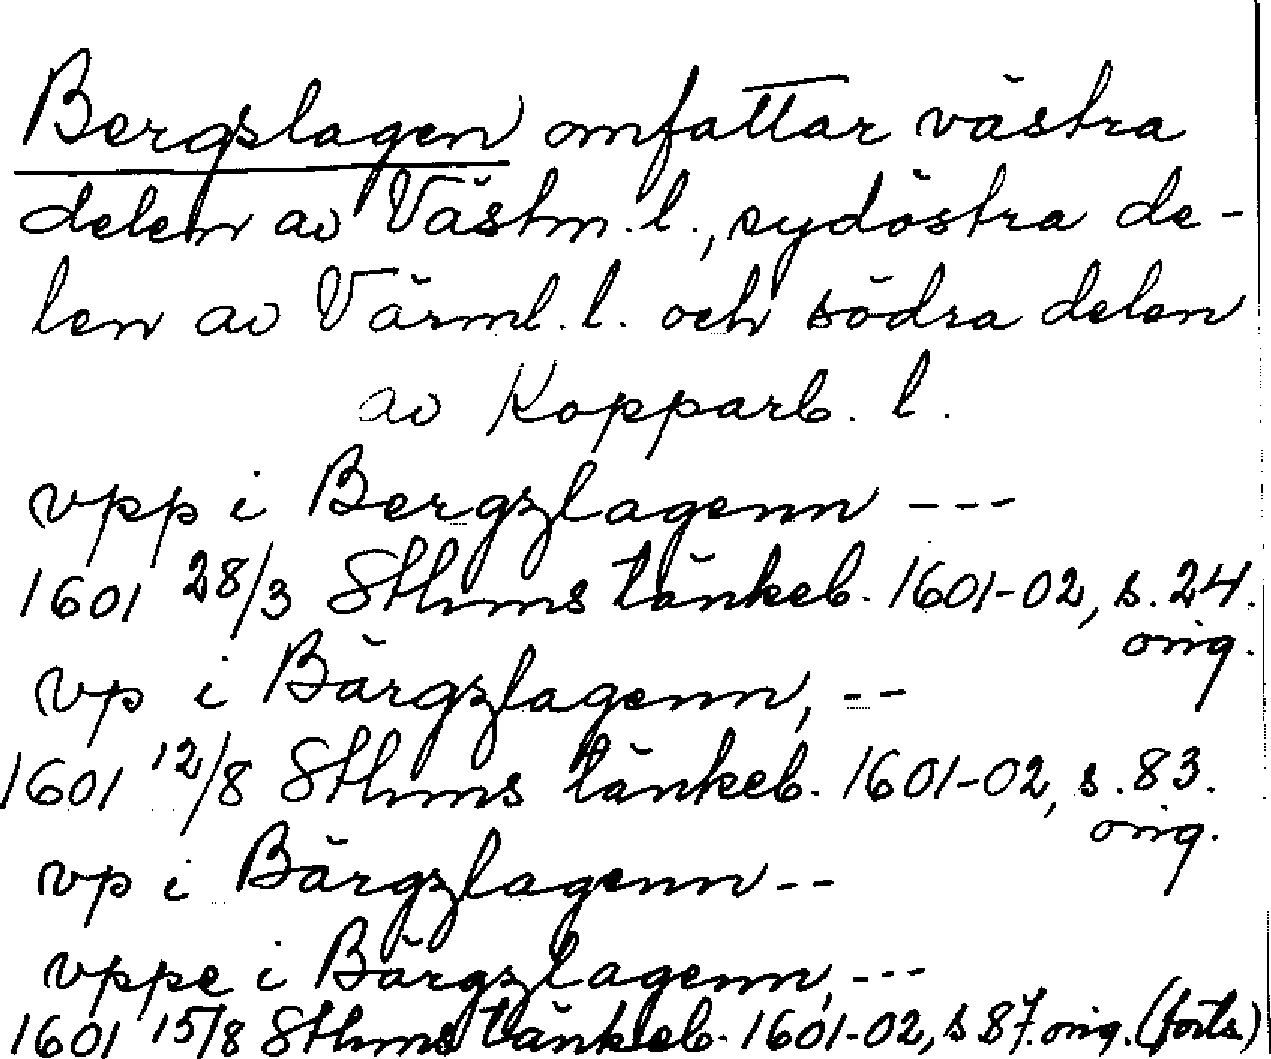 Bergslagen omfattar västra
delen av Västm. l., sydöstra de-
len av Värml. l. och södra delen
av Kopparb. l.
vpp i Bergzlagenn ---
1601 28/3 Sthms tänkeb. 1601-02, s. 24.
orig.
vp i Bärgzlagenn, --
1601 12/8 Sthms tänkeb. 1601-02, s. 83.
orig.
vp i Bärgzlagenn --
vppe i Bärgzlagenn, ---
1601 15/8 Sthms tänkeb. 1601-02, s 87. orig. (forts.)